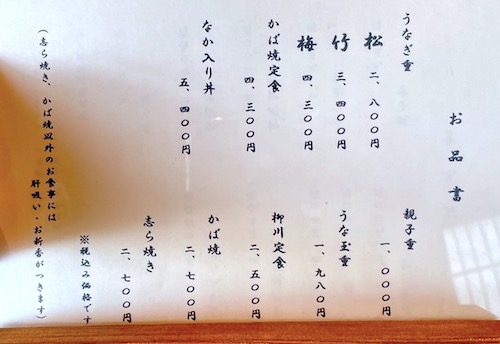 お品書
うなぎ重
松 二、八〇〇円
竹 三、四〇〇円
梅 四、三〇〇円
かば焼定食 四、三〇〇円
なか入り丼 五、四〇〇円
親子重 一、〇〇〇円
うな玉重 一、九八〇円
柳川定食 二、五〇〇円
かば焼 二、七〇〇円
志ら焼き 二、七〇〇円
※税込み価格です
（志ら焼き、かば焼以外のお食事には
肝吸い・お新香がつきます）